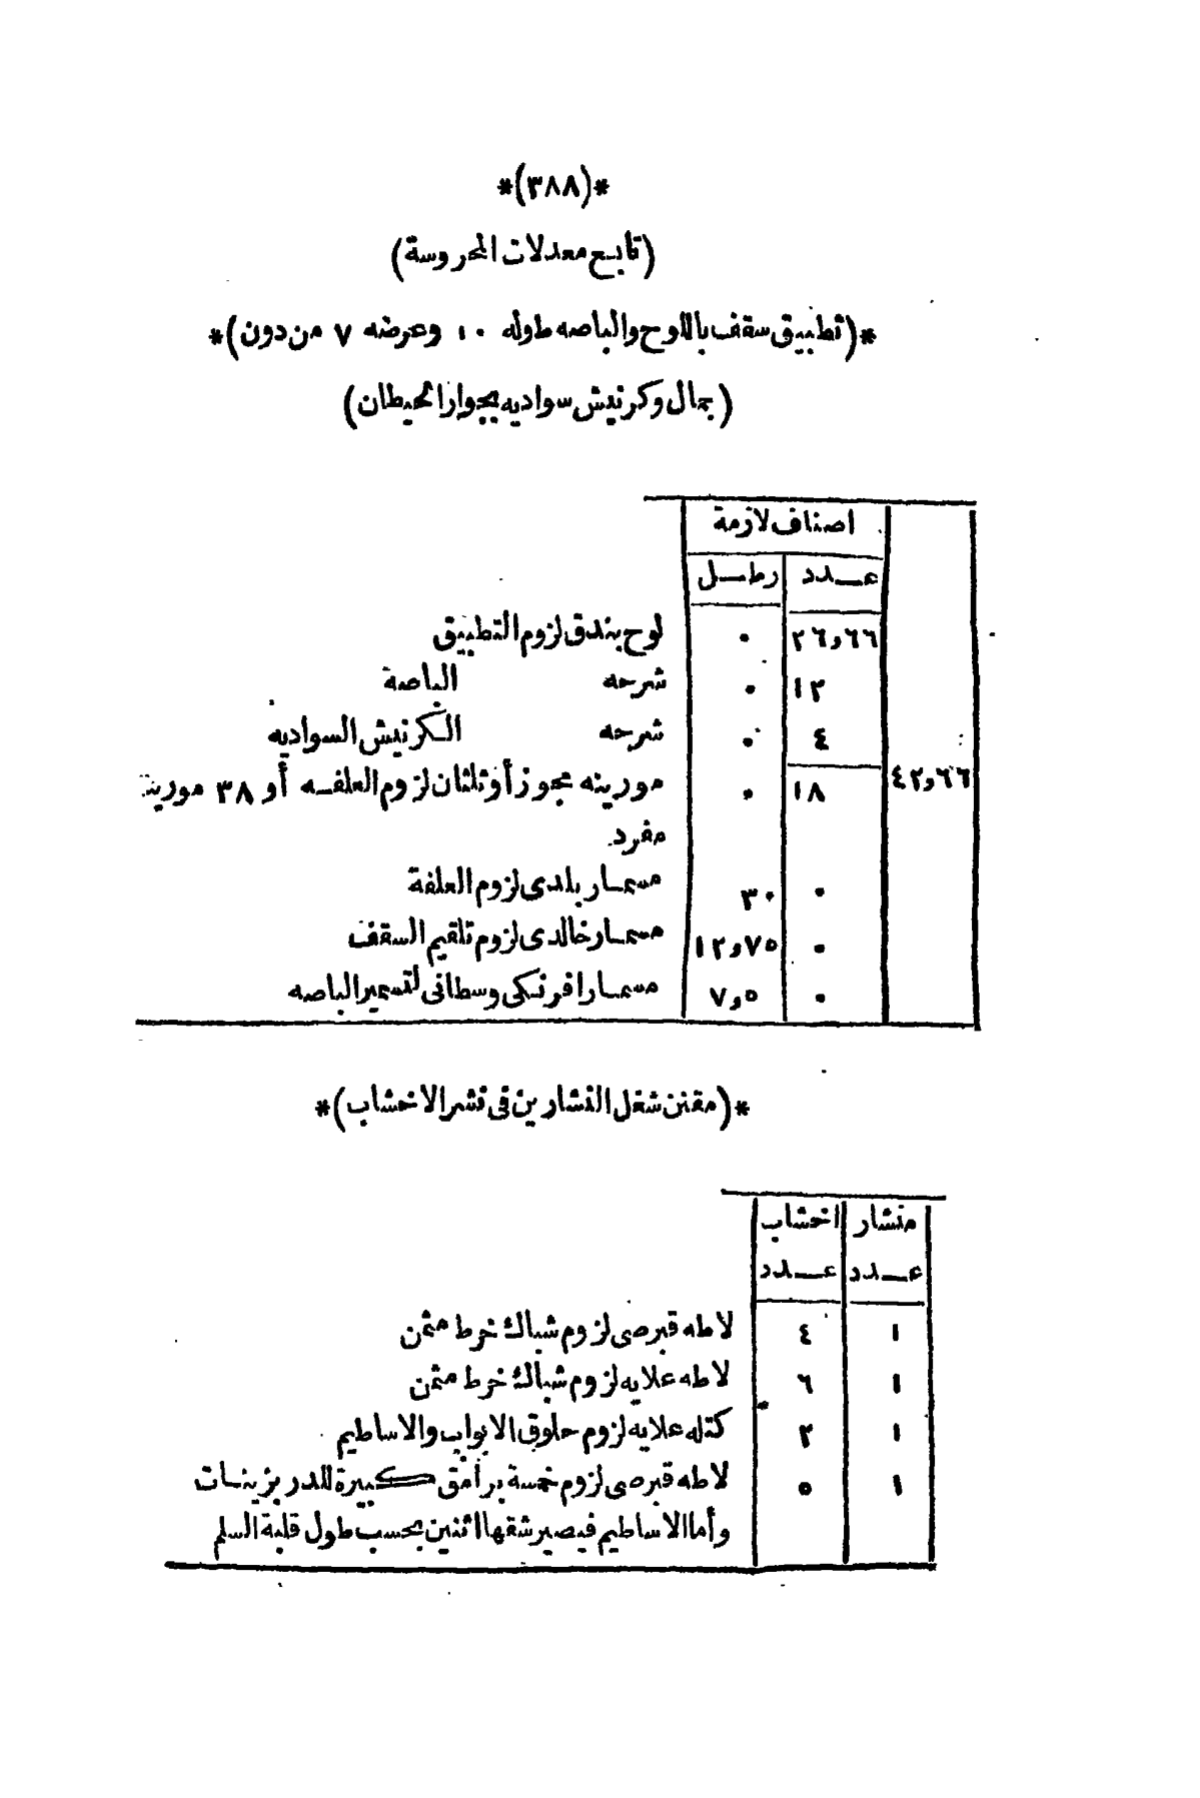 *(٣٨٨)*
(تابع معدلات المحروسة)
*(تطبيق سقف باللوح والباصه طوله ١٠ وعرضه ٧ من دون)*
(جمال وكرنيش سواديه بجوار الحيطان)
اصناف لازمة
عدد رطل
٢٦,٦٦ ٠ لوح بندق لزوم التطبيق
١٢ ٠ شرحه الباصة
٤ ٠ شرحه الكرنيش السواديه
٤٢,٦٦ ١٨ ٠ مورينه مجوز أو ثلثان لزوم العلفه أو ٣٨ مورينه
مفرد
٠ ٣٠ مسمار بلدى لزوم العلفة
٠ ١٢,٧٥ مسمار خالدى لزوم تلقيم السقف
٠ ٧,٥ مسمار افرنكى وسطانى لتسمير الباصه
*(مقنن شغل النشارين فى نشر الاخشاب)*
منشار اخشاب
عدد عدد
١ ٤ لاطه قبرصى لزوم شباك خرط مثمن
١ ٦ لاطه علايه لزوم شباك خرط مثمن
١ ٢ كتله علايه لزوم حلوق الابواب والاساطيم
١ ٥ لاطه قبرصى لزوم خمسة برامق كبيرة للدربزينات
وأما الاساطيم فيصير شقها اثنين بحسب طول قلبة السلم